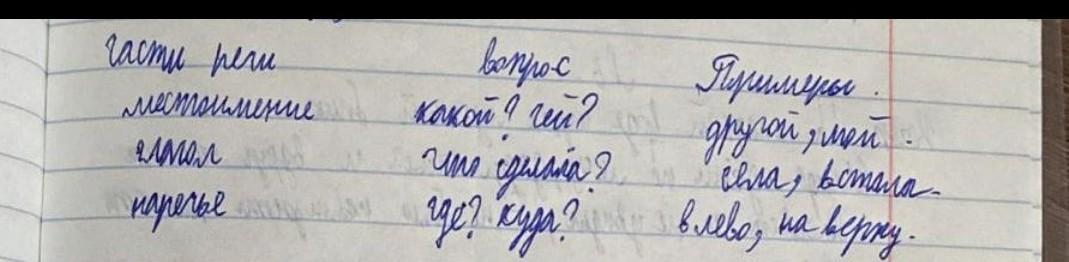 части речи вопрос Примеры.
местоимение какой? чей? другой, мой.
глагол что сделала? села, встала.
наречье где? куда? в лево, на верху.